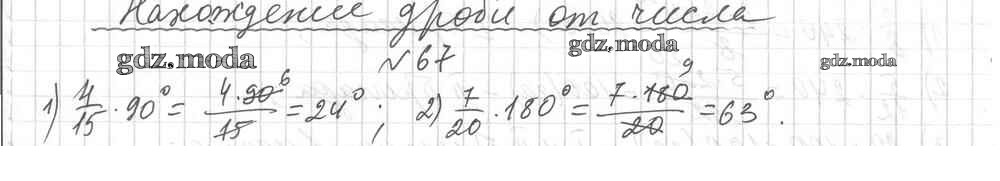 Нахождение дроби от числа
gdz.moda №67 gdz.moda gdz.moda
1) 4/15 · 90° = 4·90 6/15 = 24° ; 2) 7/20 · 180° = 7·180 9/20 = 63° .